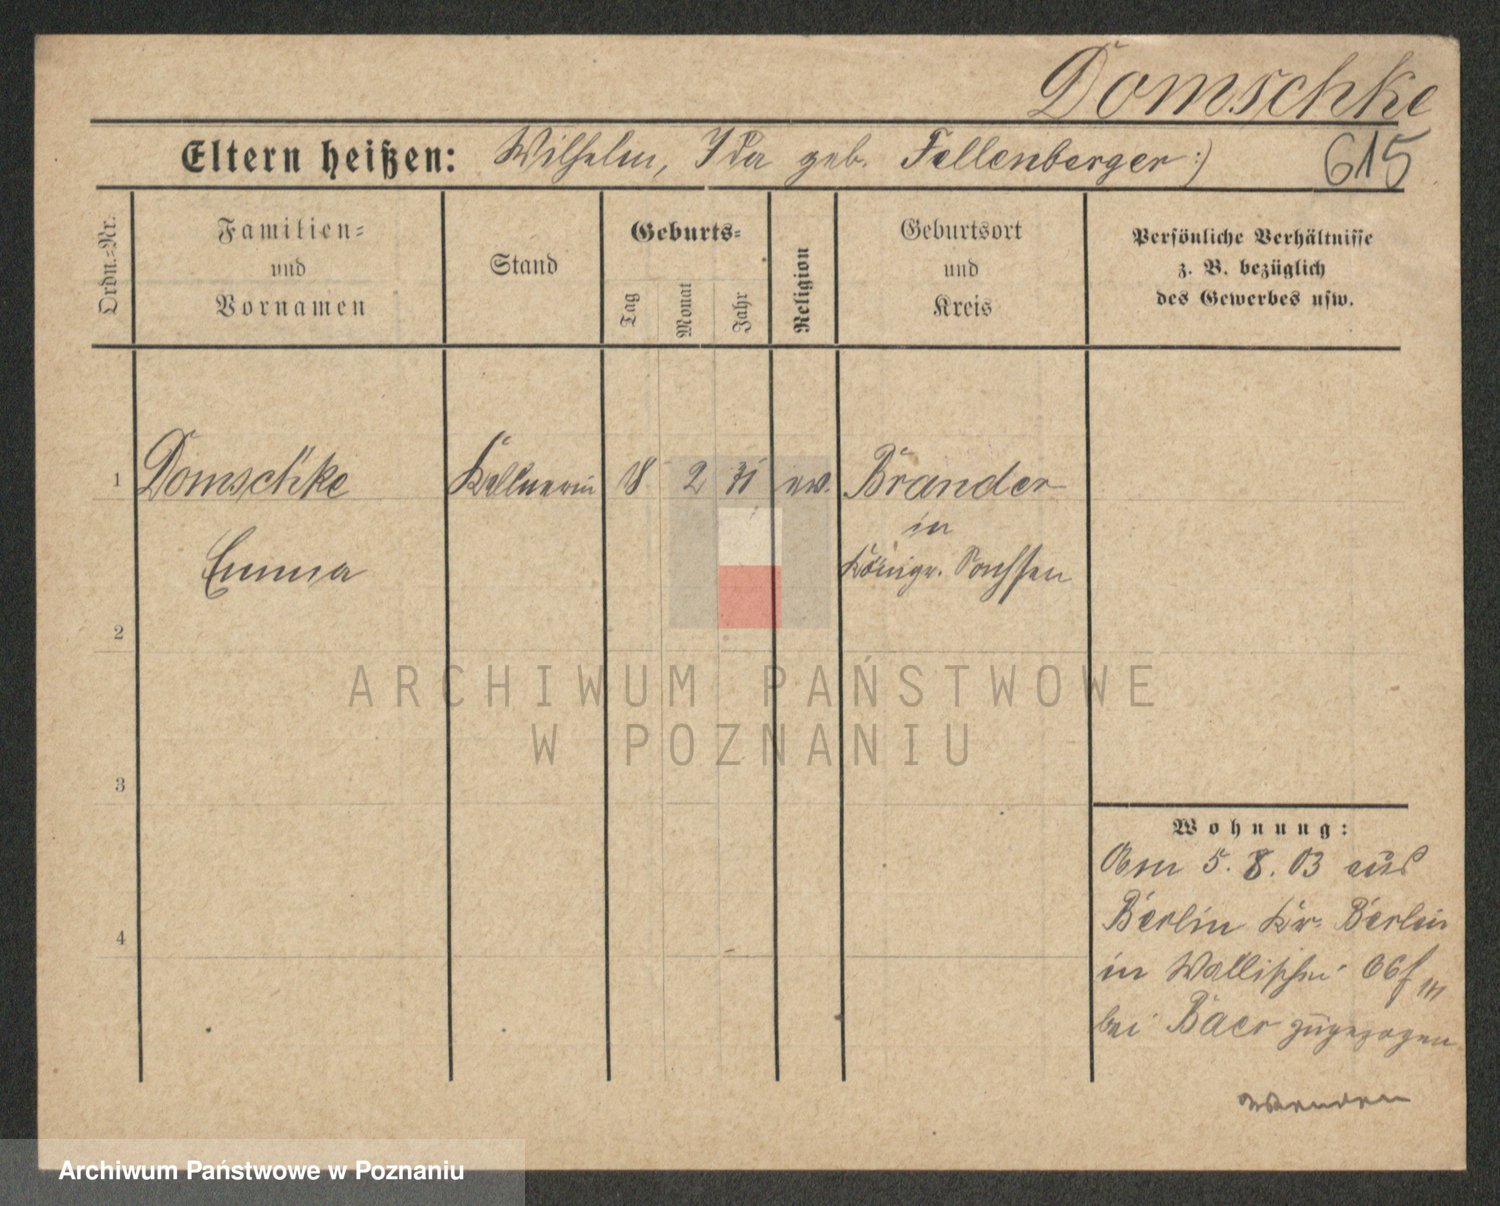 Domschke
Eltern heißen: Wilhelm, Ida geb. Fellenberger :)
615
Ordn.-Nr.
Familien-
und
Vornamen
Stand
Geburts-
Tag
Monat
Jahr
Religion
Geburtsort
und
Kreis
Persönliche Verhältnisse
z. B. bezüglich
des Gewerbes usw.
1 Domschke Kellnerin 18 2 ev. Brander
in
Emma Königr. Sachsen
2
3
4
ARCHIWUM PAŃSTWOWE
W POZNANIU
Wohnung:
Am 5. 8. 03 aus
Berlin Kr. Berlin
in Wallischei
bei Baer zugezogen
wenden
Archiwum Państwowe w Poznaniu